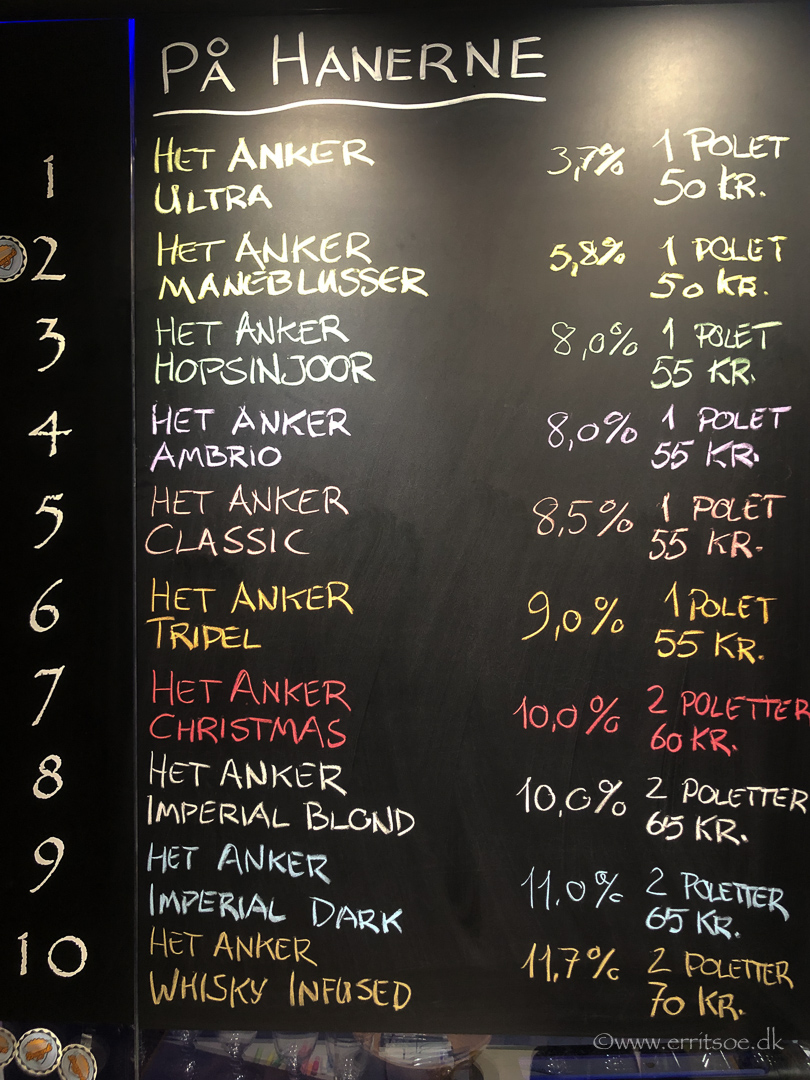 PÅ HANERNE
1 HET ANKER 3,7% 1 POLET
ULTRA 50 KR.
2 HET ANKER 5,8% 1 POLET
MANEBLUSSER 50 KR.
3 HET ANKER 8,0% 1 POLET
HOPSINJOOR 55 KR.
4 HET ANKER 8,0% 1 POLET
AMBRIO 55 KR.
5 HET ANKER 8,5% 1 POLET
CLASSIC 55 KR.
6 HET ANKER 9,0% 1 POLET
TRIPEL 55 KR.
7 HET ANKER 10,0% 2 POLETTER
CHRISTMAS 60 KR.
8 HET ANKER 10,0% 2 POLETTER
IMPERIAL BLOND 65 KR.
9 HET ANKER 11.0% 2 POLETTER
IMPERIAL DARK 65 KR.
10 HET ANKER 11,7% 2 POLETTER
WHISKY INFUSED 70 KR.
©www.erritsoe.dk